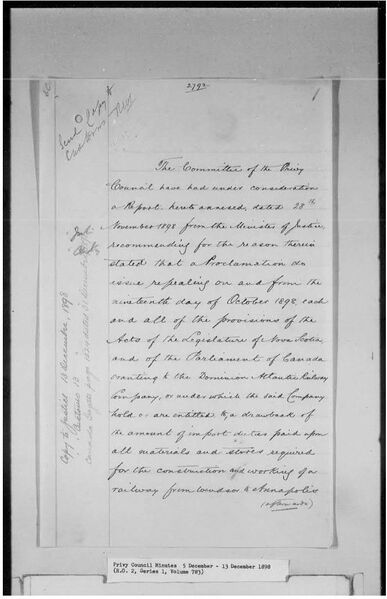 2792
Send Copy to
Customs
The Committee of the Privy
Council have had under consideration
a Report, hereto annexed, dated 28th
November 1898 from the Minister of Justice,
recommending for the reason therein
stated that a Proclamation do
issue repealing on and from the
nineteenth day of October 1898, each
and all of the provisions of the
Acts of the Legislature of Nova Scotia
and of the Parliament of Canada
granting to the Dominion Atlantic Railway
Company, or under which the said Company
hold or are entitled to a drawback of
the amount of import duties paid upon
all materials and stores required
for the construction and working of a
railway from Windsor to Annapolis
Copy to Justice 13 December, 1898
Customs 13
Canada Gazette
Privy Council Minutes 5 December - 13 December 1898
(R.G. 2, Series 1, Volume 783)